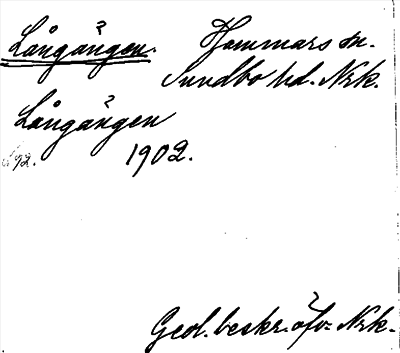 Långängen. Hammars sn.
Sundbo hd. Nrk.
Långängen
1902.
Geol. beskr. öfv. Nrk.